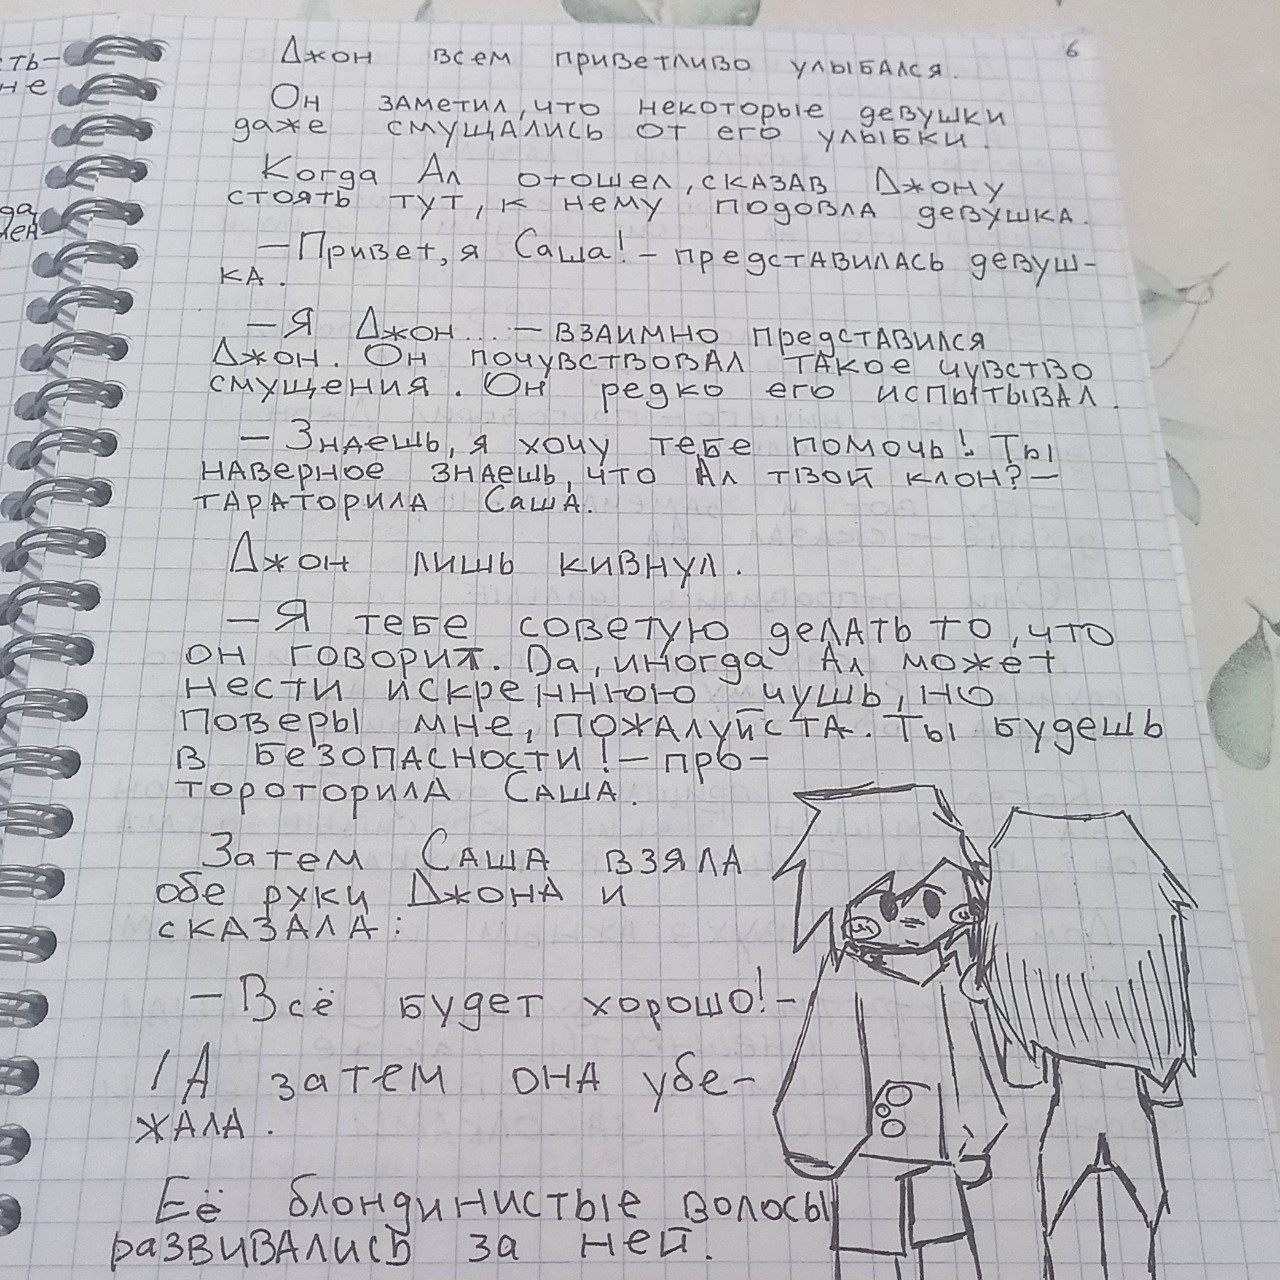 6
Джон всем приветливо улыбался.
Он заметил, что некоторые девушки
даже смущались от его улыбки.
Когда Ал отошел, сказав Джону
стоять тут, к нему подовла девушка.
— Привет, я Саша! — представилась девуш-
ка.
— Я Джон... — взаимно представился
Джон. Он почувствовал такое чувство
смущения. Он редко его испытывал.
— Знаешь, я хочу тебе помочь! Ты
наверное знаешь, что Ал твой клон? —
тараторила Саша.
Джон лишь кивнул.
— Я тебе советую делать то, что
он говорит. Да, иногда Ал может
нести искреннюю чушь, но
поверы мне, пожалуйста. Ты будешь
в безопасности! — про-
тороторила Саша.
Затем Саша взяла
обе руки Джона и
сказала:
— Всё будет хорошо! —
А затем она убе-
жала.
Её блондинистые волосы
развивались за ней.
ть-
не
да